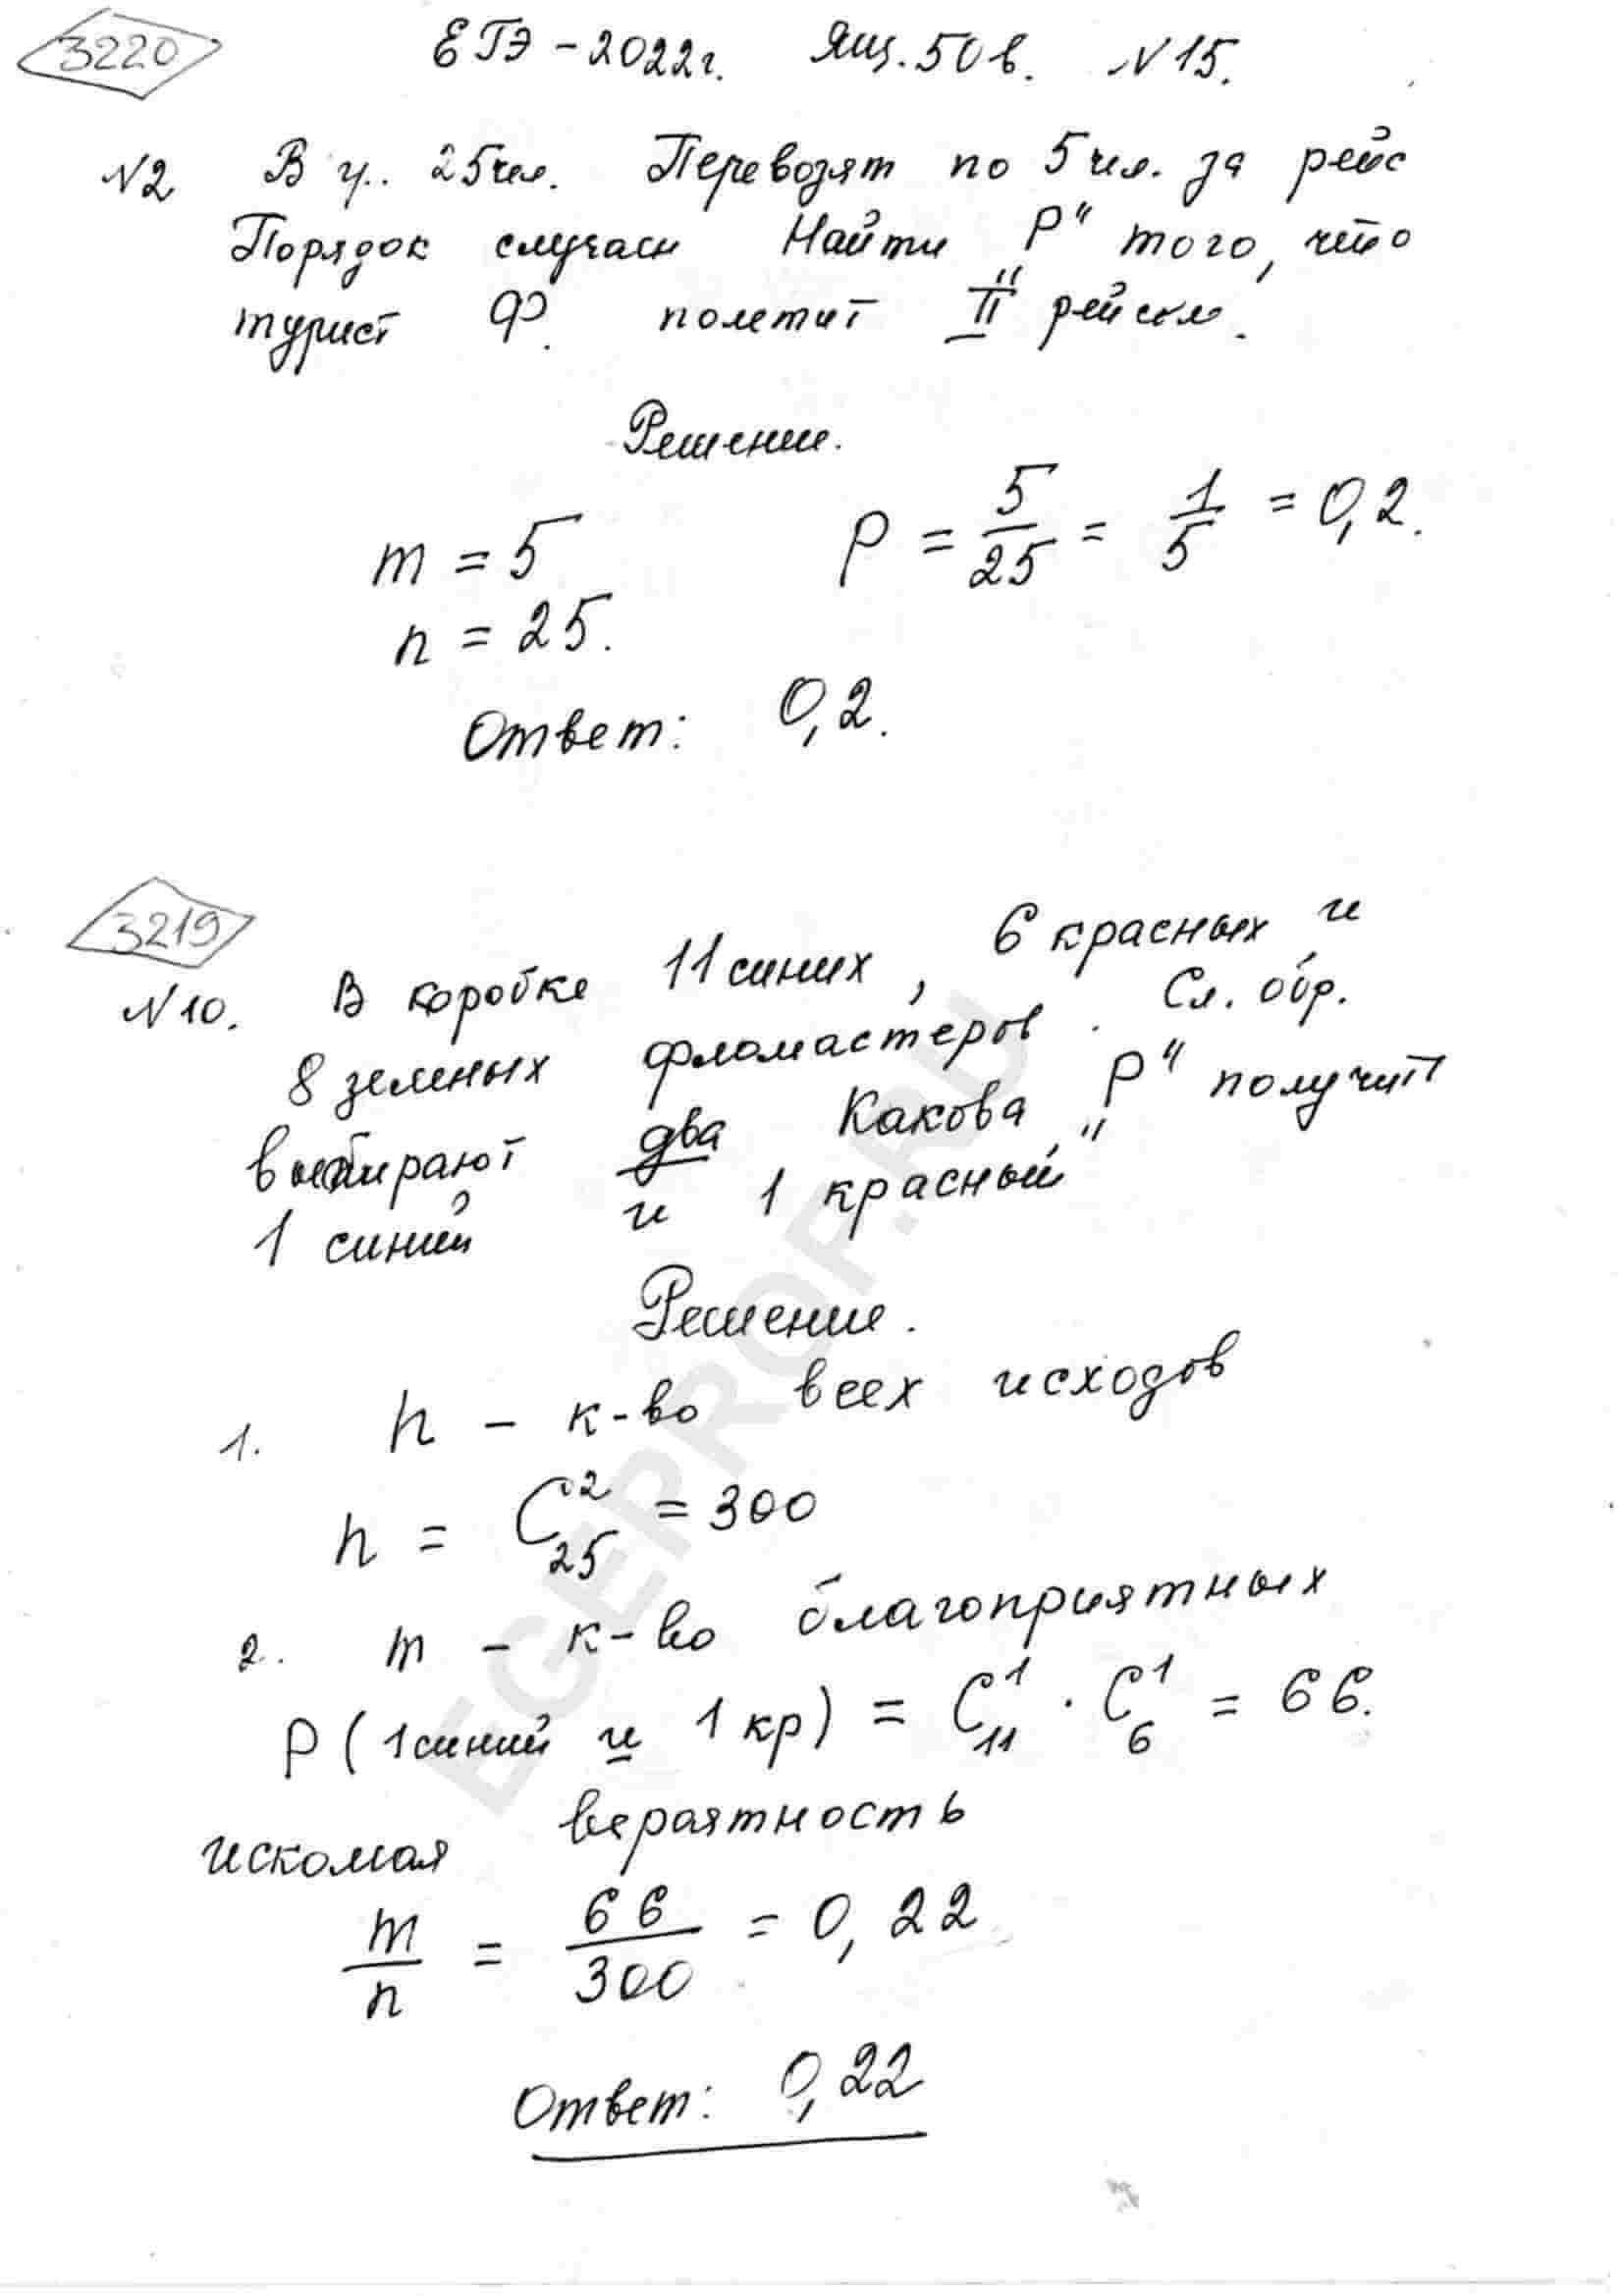 3220
ЕГЭ - 2022г. Ящ. 50 в. №15.
№2 В г.. 25 чел. Перевозят по 5 чел. за рейс
Порядок случаен Найти "Р" того, что
турист Ф. полетит II рейсом.
Решение.
m = 5
P = 5/25 = 1/5 = 0,2.
n = 25.
Ответ: 0,2.
3219
№10. В коробке 11 синих, 6 красных и
8 зеленых фломастеров. Сл. обр.
выбирают два Какова "Р" получит
1 синий и 1 красный
Решение.
1. n - к-во всех исходов
n = C²₂₅ = 300
2. m - к-во благоприятных
P (1 синий и 1 кр) = C¹₁₁ · C¹₆ = 66.
искомая вероятность
m/n = 66/300 = 0,22
Ответ: 0,22
EGEPROF.RU